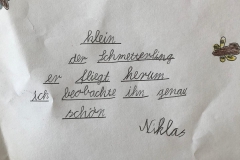 klein
der Schmetterling
er fliegt herum
Ich beobachte ihn genau
schön
Niklas